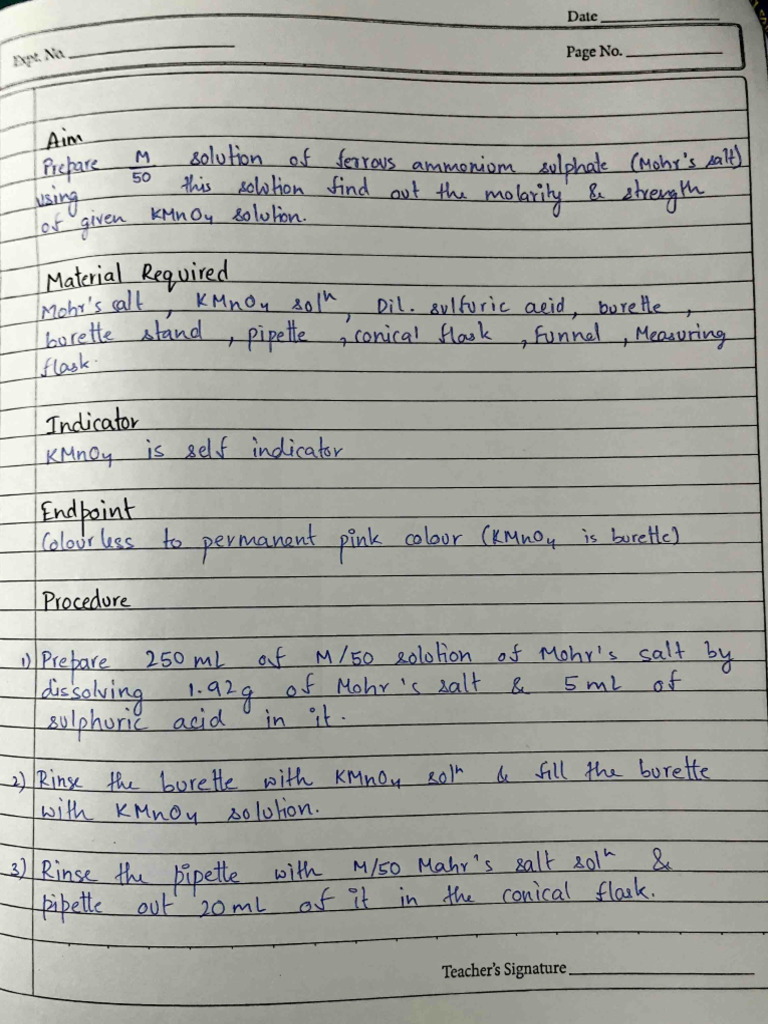 Date
Expt. No.
Page No.
Aim
Prepare M/50 solution of ferrous ammoniom sulphate (Mohr's salt)
using this solution find out the molarity & strength
of given KMnO4 solution.
Material Required
Mohr's salt , KMnO4 solⁿ, Dil. sulfuric acid, burette ,
burette stand , pipette , conical flask , funnel , Measuring
flask.
Indicator
KMnO4 is self indicator
Endpoint
Colourless to permanent pink colour (KMnO4 is burette)
Procedure
1) Prepare 250 mL of M/50 solution of Mohr's salt by
dissolving 1.92g of Mohr's salt & 5 mL of
sulphuric acid in it.
2) Rinse the burette with KMnO4 solⁿ & fill the burette
with KMnO4 solution.
3) Rinse the pipette with M/50 Mahr's salt solⁿ &
pipette out 20 mL of it in the conical flask.
Teacher's Signature